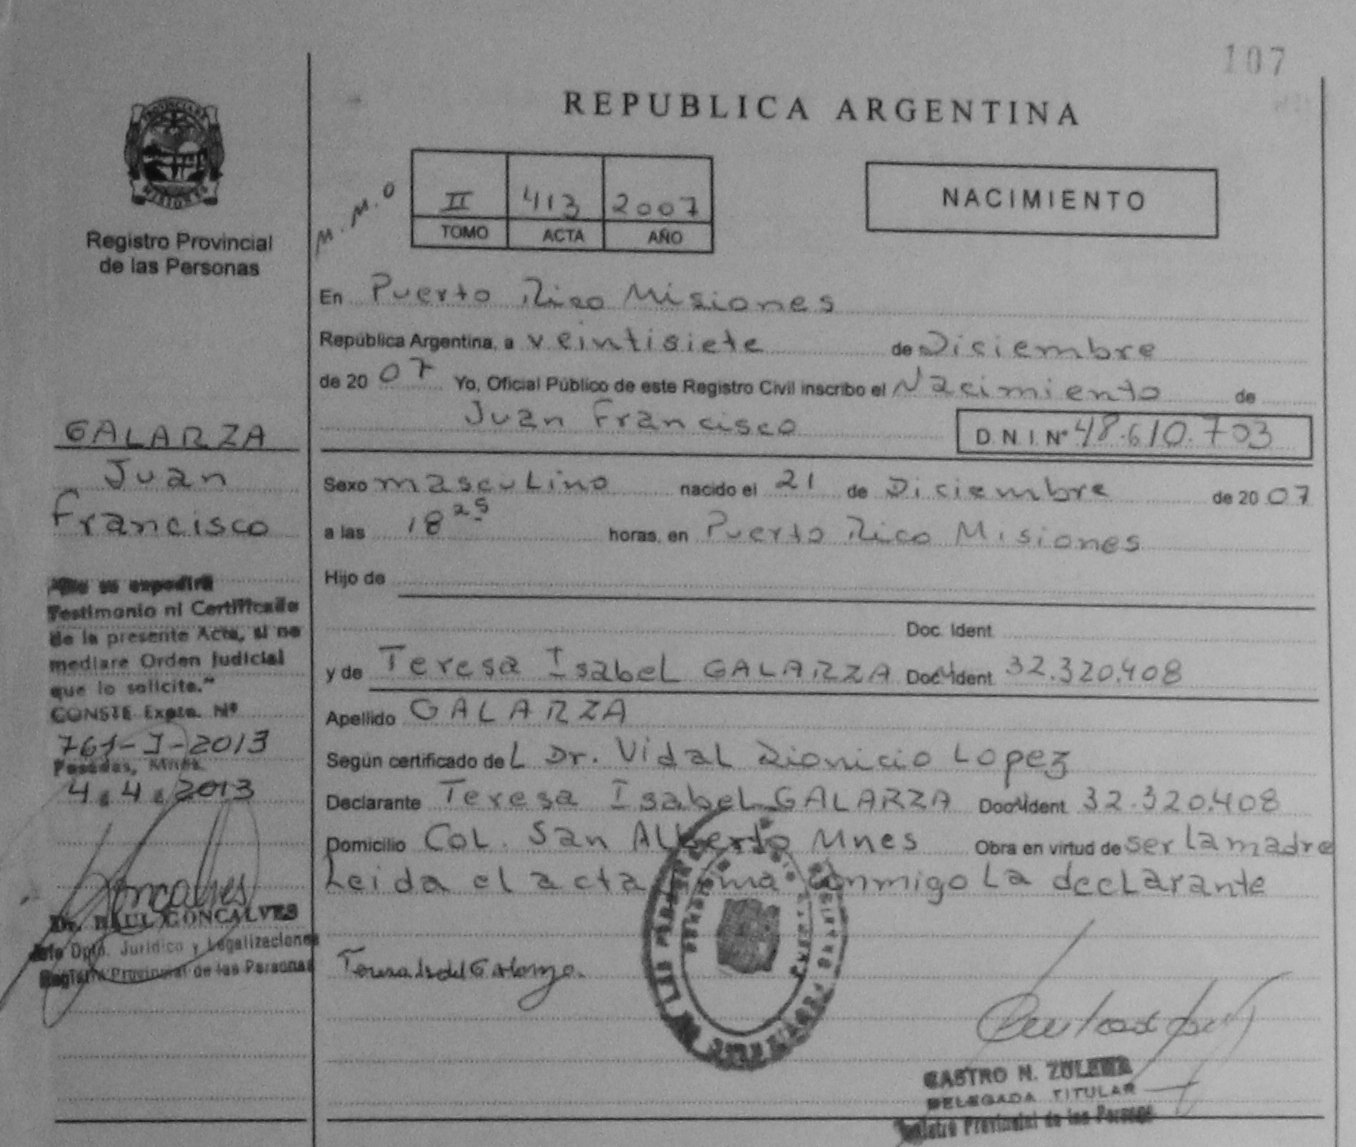 107
REPUBLICA ARGENTINA
PROVINCIA DE
MISIONES
Registro Provincial
de las Personas
M.M.O
II 413 2007
TOMO ACTA AÑO
NACIMIENTO
En Puerto Rico Misiones
República Argentina, a veintisiete de Diciembre
de 20 07 Yo, Oficial Público de este Registro Civil inscribo el Nacimiento de
Juan Francisco D.N.I. Nº 48.610.703
Sexo masculino nacido el 21 de Diciembre de 20 07
a las 18 25 horas, en Puerto Rico Misiones
Hijo de
Doc. Ident.
y de Teresa Isabel GALARZA Doc. Ident. 32.320.408
Apellido GALARZA
Según certificado del Dr. Vidal Dionicio Lopez
Declarante Teresa Isabel GALARZA Doc. Ident. 32.320.408
Domicilio Col. San Alberto Mnes Obra en virtud de ser la madre
Leida el acta firma conmigo la declarante
GALARZA
Juan
Francisco
"No se expedirá
Testimonio ni Certificado
de la presente Acta, si no
mediare Orden Judicial
que lo solicite."
CONSTE Expte. Nº
761-J-2013
Posadas, Mnes.
4 4 2013
Goncalves
Dr. RAUL GONCALVES
Jefe Dpto. Jurídico y Legalizaciones
Registro Provincial de las Personas
CASTRO N. ZULEMA
DELEGADA TITULAR
Registro Provincial de las Personas